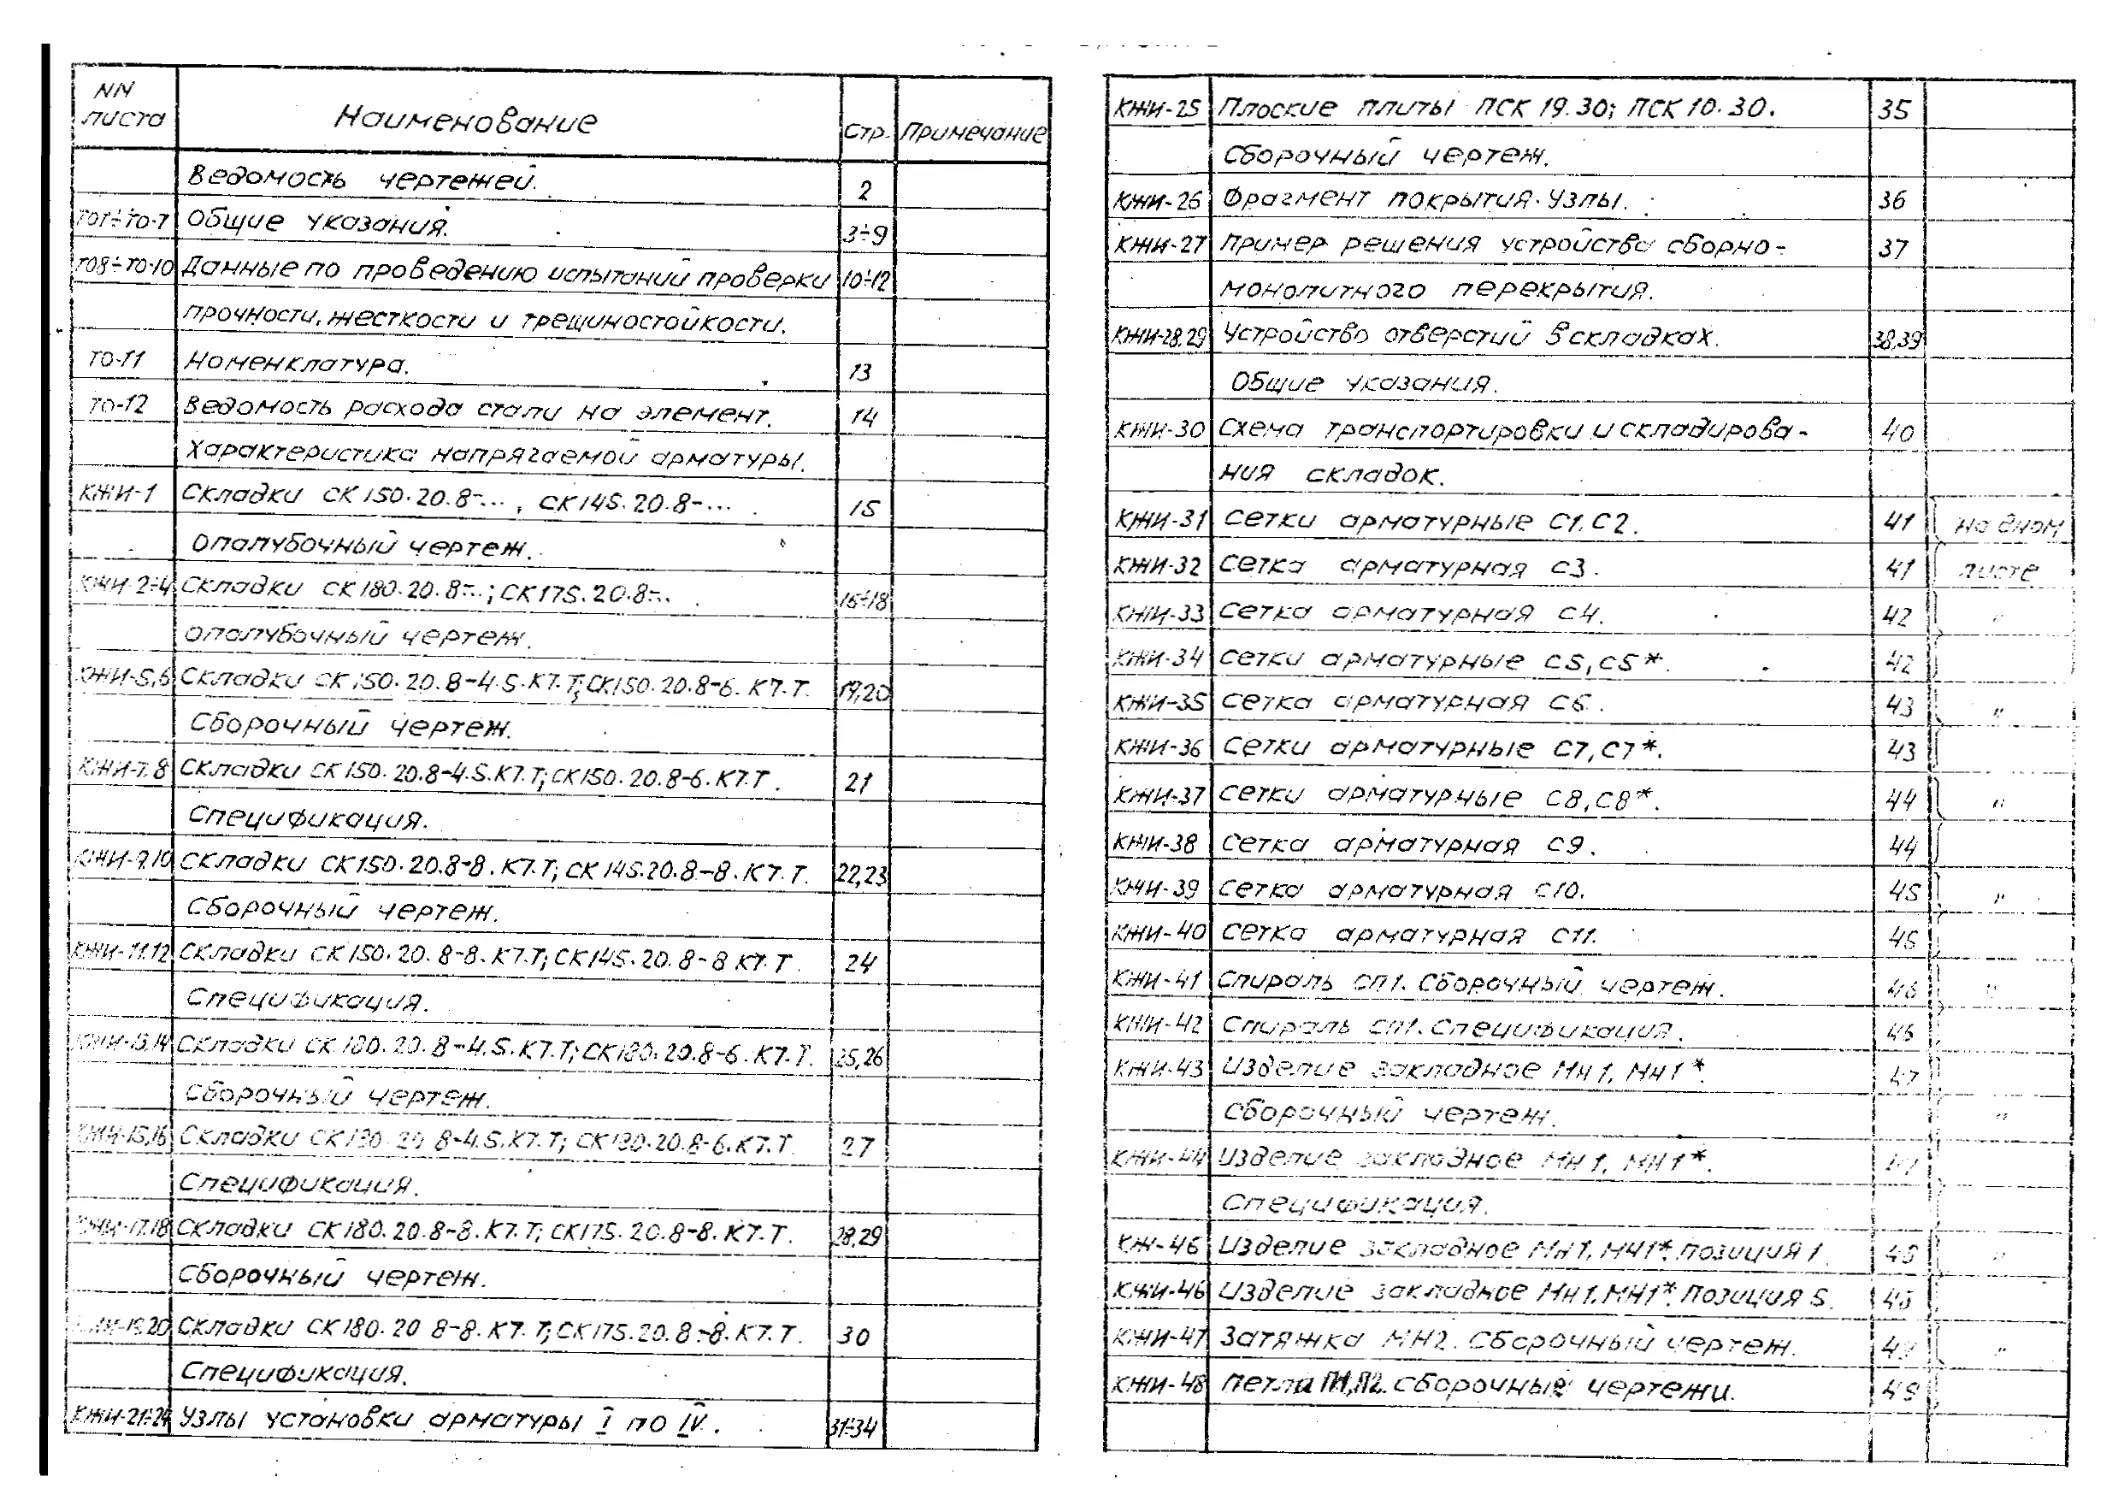 NN листа Наименование Стр. Примечание
Ведомость чертежей. 2
ТО1÷ТО-7 Общие указания. 3÷9
ТО8÷ТО-10 Данные по проведению испытаний проверки 10÷12
прочности, жесткости и трещиностойкости.
ТО-11 Номенклатура. 13
ТО-12 Ведомость расхода стали на элемент. 14
Характеристика напрягаемой арматуры.
КЖИ-1 Складки СК 150.20.8-... , СК 145.20.8-... . 15
Опалубочный чертеж.
КЖИ-2÷4 Складки СК 180.20.8-..; СК 175.20.8-.. . 16÷18
Опалубочный чертеж.
КЖИ-5,6 Складки СК 150.20.8-4.5.К7.Т; СК150.20.8-6.К7.Т. 19,20
Сборочный чертеж.
КЖИ-7,8 Складки СК 150.20.8-4.5.К7.Т; СК150.20.8-6.К7.Т. 21
Спецификация.
КЖИ-9,10 Складки СК150.20.8-8.К7.Т; СК 145.20.8-8.К7.Т. 22,23
Сборочный чертеж.
КЖИ-11,12 Складки СК 150.20.8-8.К7.Т; СК145.20.8-8 К7.Т. 24
Спецификация.
КЖИ-13,14 Складки СК 180.20.8-4.5.К7.Т; СК180.20.8-6.К7.Т. 25,26
Сборочный чертеж.
КЖИ-15,16 Складки СК180.20 8-4.5.К7.Т; СК180.20.8-6.К7.Т. 27
Спецификация.
КЖИ-17,18 Складки СК 180.20.8-8.К7.Т; СК175.20.8-8.К7.Т. 28,29
Сборочный чертеж.
КЖИ-19,20 Складки СК 180.20 8-8.К7.Т; СК 175.20.8-8.К7.Т. 30
Спецификация.
КЖИ-21÷24 Узлы установки арматуры I по IV. 31÷34
КЖИ-25 Плоские плиты ПСК 19.30; ПСК 10.30. 35
Сборочный чертеж.
КЖИ-26 Фрагмент покрытия. Узлы. 36
КЖИ-27 Пример решения устройства сборно- 37
монолитного перекрытия.
КЖИ-28,29 Устройство отверстий в складках. 38,39
Общие указания.
КЖИ-30 Схема транспортировки и складирова- 40
ния складок.
КЖИ-31 Сетки арматурные С1.С2. 41 на одном
КЖИ-32 Сетка арматурная С3. 41 листе
КЖИ-33 Сетка арматурная С4. 42 "
КЖИ-34 Сетки арматурные С5,С5*. 42
КЖИ-35 Сетка арматурная С6. 43 "
КЖИ-36 Сетки арматурные С7,С7*. 43
КЖИ-37 Сетки арматурные С8,С8*. 44 "
КЖИ-38 Сетка арматурная С9. 44
КЖИ-39 Сетка арматурная С10. 45 "
КЖИ-40 Сетка арматурная С11. 45
КЖИ-41 Спираль СП1. Сборочный чертеж. 46 "
КЖИ-42 Спираль СП1. Спецификация. 46
КЖИ-43 Изделие закладное МН1, МН1*. 47
Сборочный чертеж. "
КЖИ-44 Изделие закладное МН1, МН1*. 47
Спецификация.
КЖ-46 Изделие закладное МН1, МН1*. позиция 1. 48 "
КЖИ-46 Изделие закладное МН1, МН1*. Позиция 5. 48
КЖИ-47 Затяжка МН2. Сборочный чертеж. 49 "
КЖИ-48 Петли П1,П2. Сборочные чертежи. 49